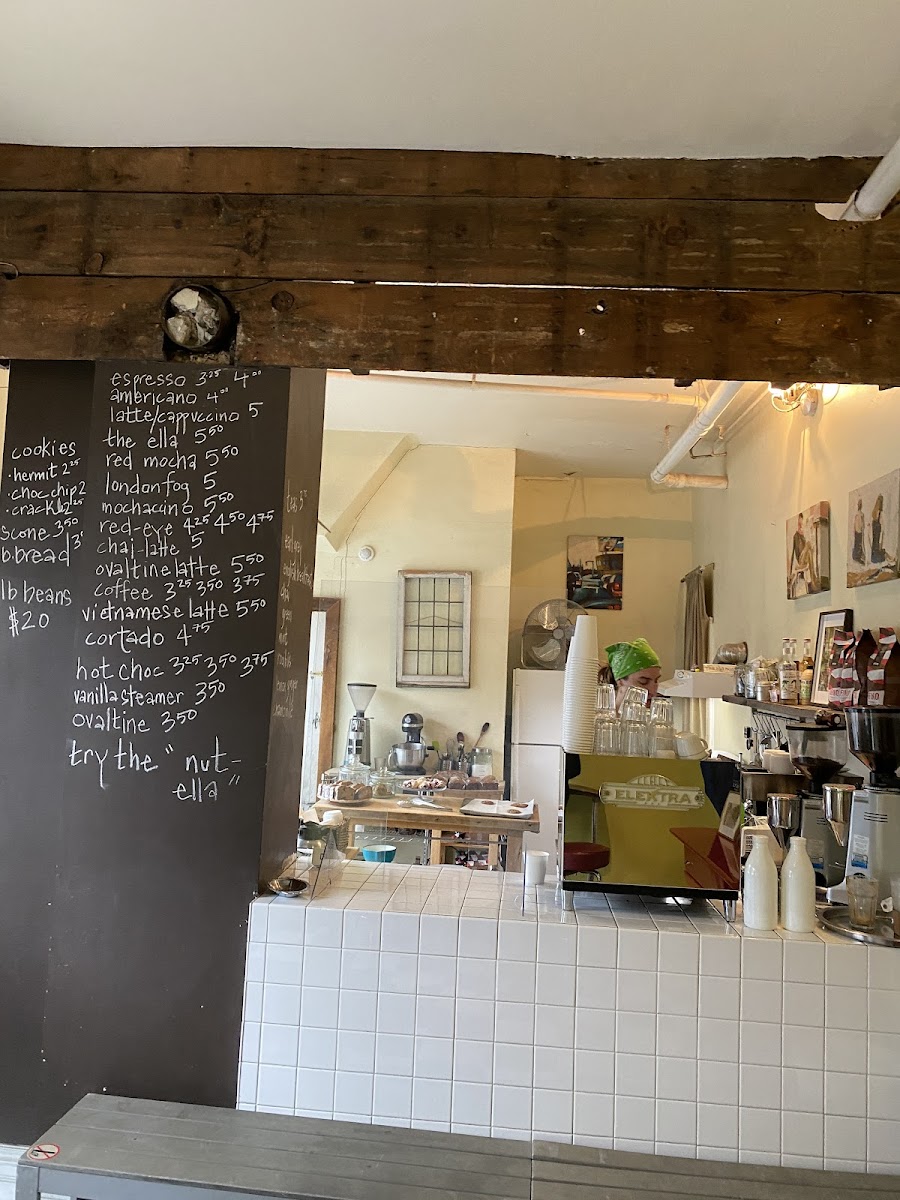 cookies
·hermit 2.25
·choc chip 2
·crackle 2.25
scone 3.50
b.bread 3
lb beans
$20
espresso 3.25 4.00
americano 4.00
latte/cappuccino 5
the ella 5.50
red mocha 5.50
london fog 5
mochacino 5.50
red-eye 4.25 4.50 4.75
chai-latte 5
ovaltine latte 5.50
coffee 3.25 3.50 3.75
vietnamese latte 5.50
cortado 4.75
hot choc 3.25 3.50 3.75
vanilla steamer 3.50
ovaltine 3.50
try the "nut-
ella"
earl grey
chai
green
mint
ELEKTRA